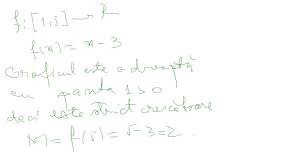 f: [1,5] → R
f(x) = x - 3
Graficul este o dreaptă
cu panta 1>0
deci este strict crescătoare
M = f(5) = 5 - 3 = 2.